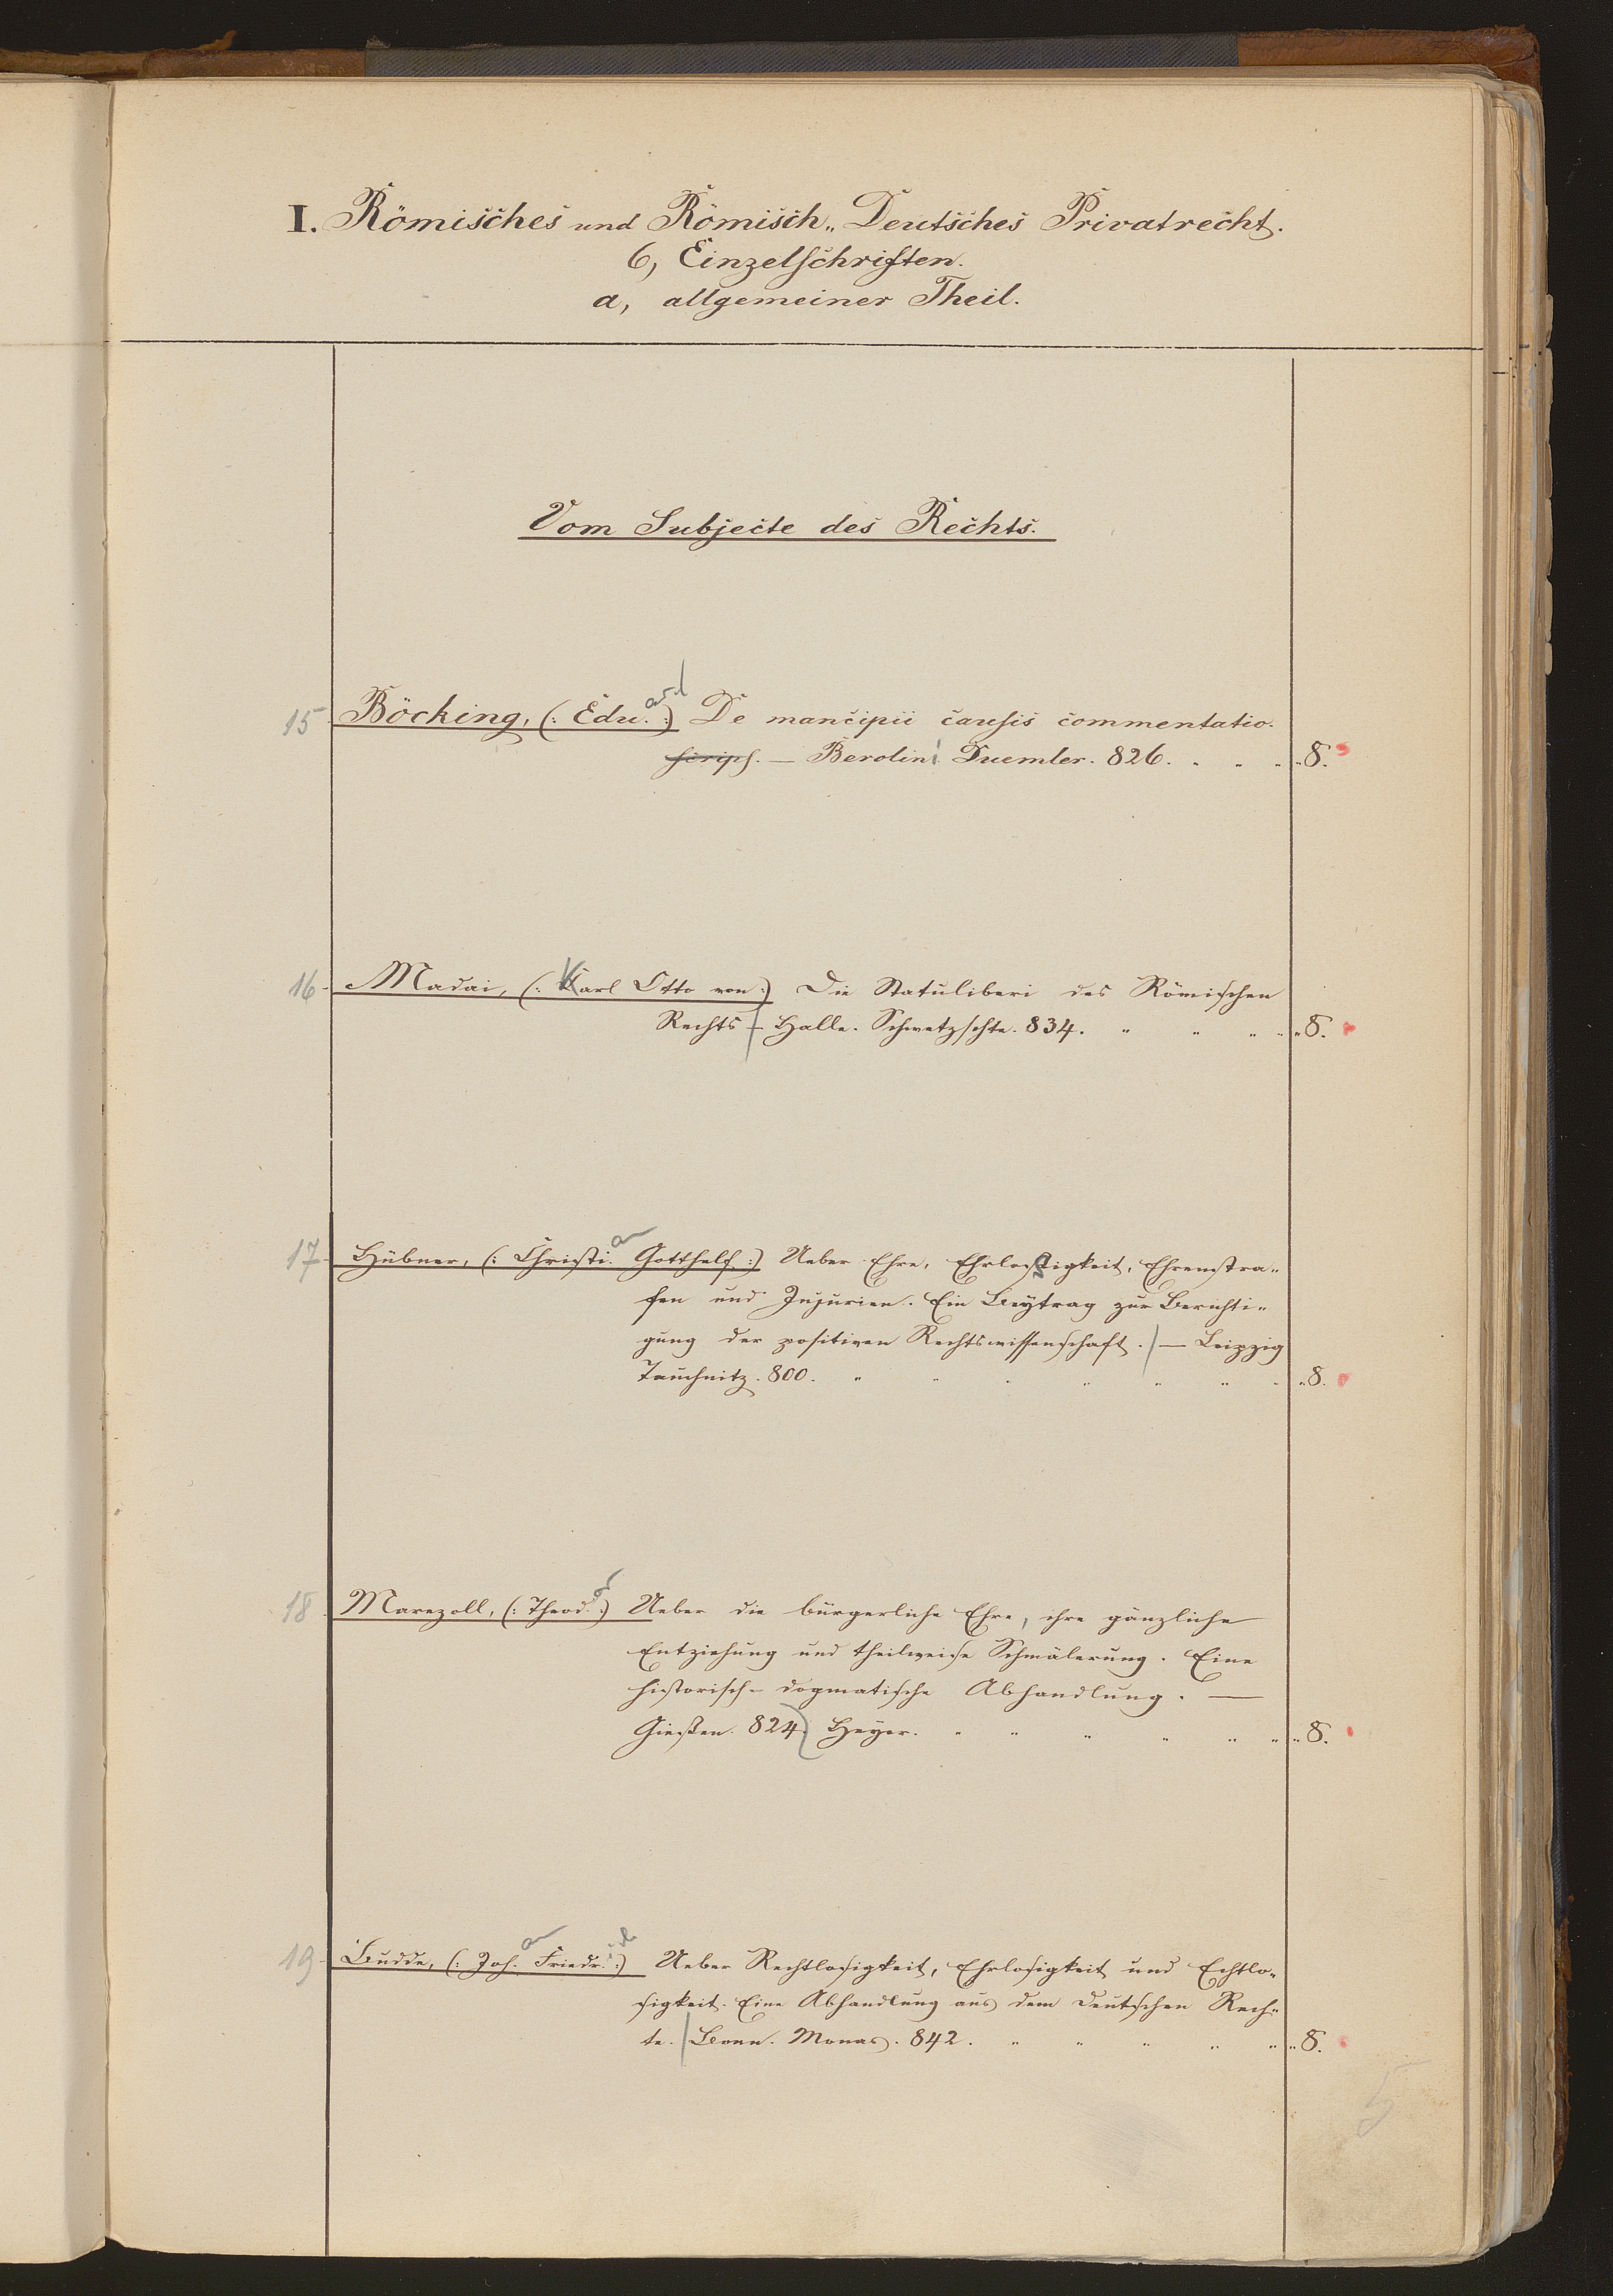 I. Römisches und Römisch„ Deutsches Privatrecht.
6, Einzelschriften.
a, allgemeiner Theil.
Vom Subjecte des Rechts.
15 Böcking, (: Edu. :) ard De mancipii causis commentatio.
scrips. — Berolini Duemler. 826. „ „ „ 8.
16 Madai, (: Karl Otto von :) Die Statuliberi des Römischen
Rechts — Halle. Schwetzschke. 834. „ „ „ „ 8.
17 Hübner, (: Christi. an Gotthelf :) Ueber Ehre, Ehrlosigkeit, Ehrenstra„
fen und Injurien. Ein Beytrag zur Berichti„
gung der positiven Rechtswissenschaft. — Leipzig
Tauchnitz. 800. „ „ „ „ „ „ „ 8.
18 Marezoll, (: Theod. :) Ueber die bürgerliche Ehre, ihre gänzliche
Entziehung und theilweise Schmälerung. Eine
historisch-dogmatische Abhandlung. —
Gießen. 824. Heyer. „ „ „ „ „ „ 8.
19 Budde, (: Joh. Friedr. :) Ueber Rechtlosigkeit, Ehrlosigkeit und Echtlo„
sigkeit. Eine Abhandlung aus dem deutschen Rech„
te. Bonn. Monas. 842. „ „ „ „ „ 8.
5